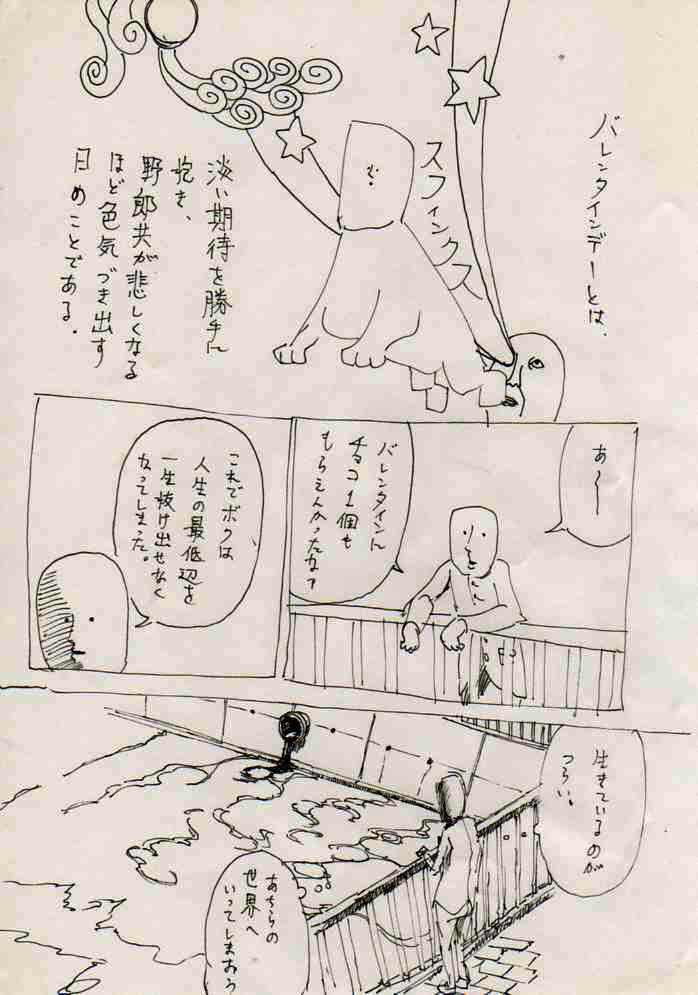 バレンタインデーとは、
スフィンクス
淡い期待を勝手に
抱き、
野郎共が悲しくなる
ほど色気づき出す
日のことである.
あ〜〜
バレンタインに
チョコ1個も
もらえんかったなァ
これでボクは、
人生の最低辺を
一生抜け出せなく
なってしまった。
生きているのが
つらい。
あちらの
世界へ
いってしまおう